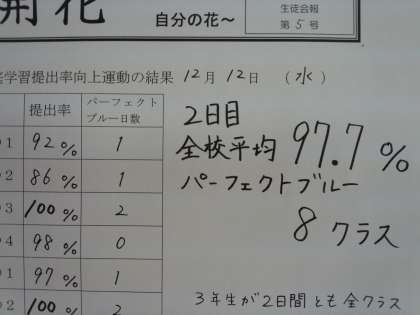 開花
自分の花~
生徒会報
第5号
学習提出率向上運動の結果 12月12日 (水)
提出率 パーフェクト
ブルー日数
1 92% 1
2 86% 1
3 100% 2
4 98% 0
1 97% 1
2 100% 2
2日目
全校平均 97.7%
パーフェクトブルー
8クラス
3年生が2日間とも全クラス